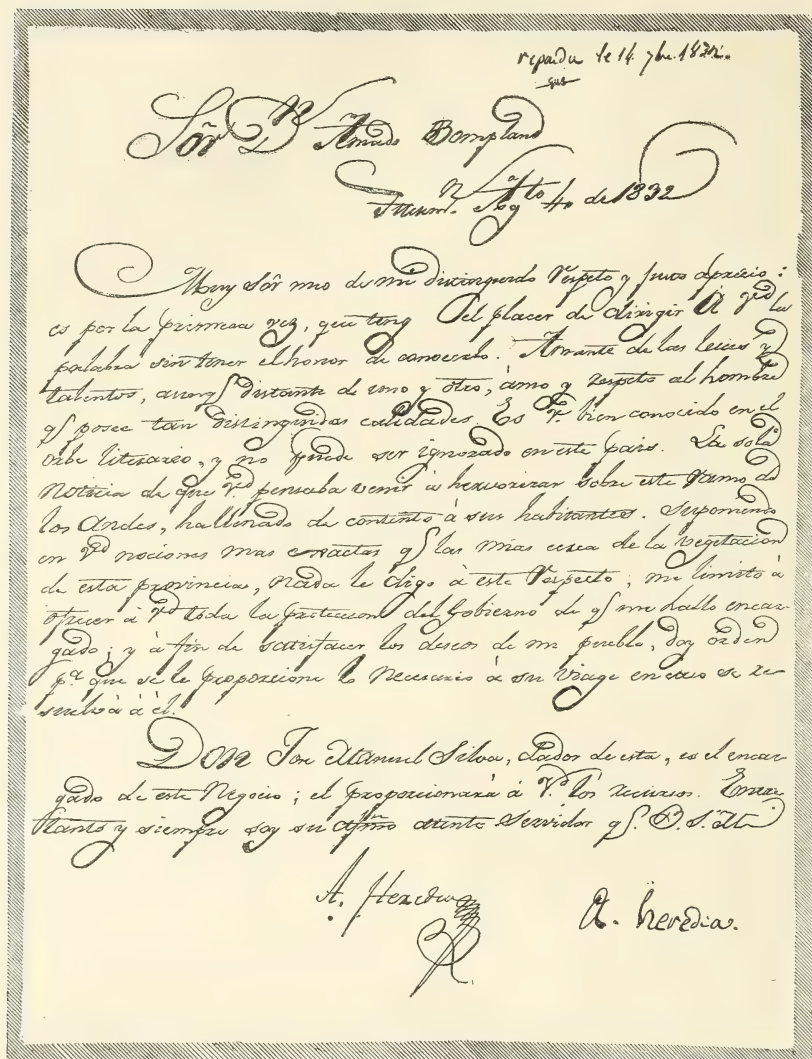 le 14 7bre 1832.
Sõr Dn Amado Bompland
Tucumn. Agto 4 de 1832
Muy Sõr mio de mi distinguido respeto y justo aprecio:
es por la primera vez, que tengo el placer de dirigir á Vd la
palabra sin tener el honor de conocerlo. Amante de las luces y
talentos, aunq. distante de uno y otro, ámo y respeto al hombre
q. posee tan distinguidas calidades. Es V. bien conocido en el
orbe literareo, y no puede ser ignorado en este pais. La sola
noticia de que Vd pensaba venir à hervorizar sobre este ramo de
los Andes, ha llenado de contento à sus habitantes. Suponiendo
en Vd nociones mas exactas q. las mias cerca de la vegetacion
de esta provincia, nada le digo à este respecto; me limito à
ofrecer à Vd toda la proteccion del Gobierno de q. me hallo encar-
gado; y à fin de satisfacer los deseos de mi pueblo, doy orden
pa que se le proporcione lo necesario à su viage en caso se re-
suelva à él.
Don Jose Manuel Silva, dador de esta, es el encar-
gado de este negocio; el proporcionará á Vd los recursos. Entre
tanto y siempre soy su afmo atento servidor q. B. S. M.
A. Heredia
A. heredia.